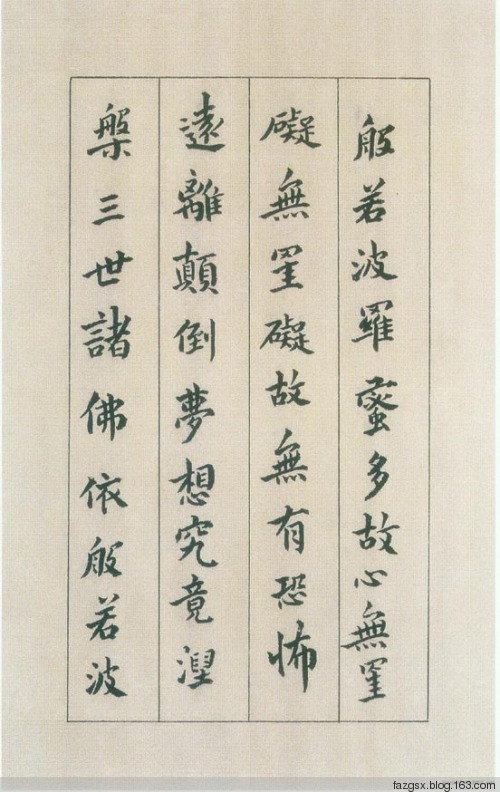 般若波羅蜜多故心無罣
礙無罣礙故無有恐怖
遠離顛倒夢想究竟涅
槃三世諸佛依般若波
fazgsx.blog.163.com